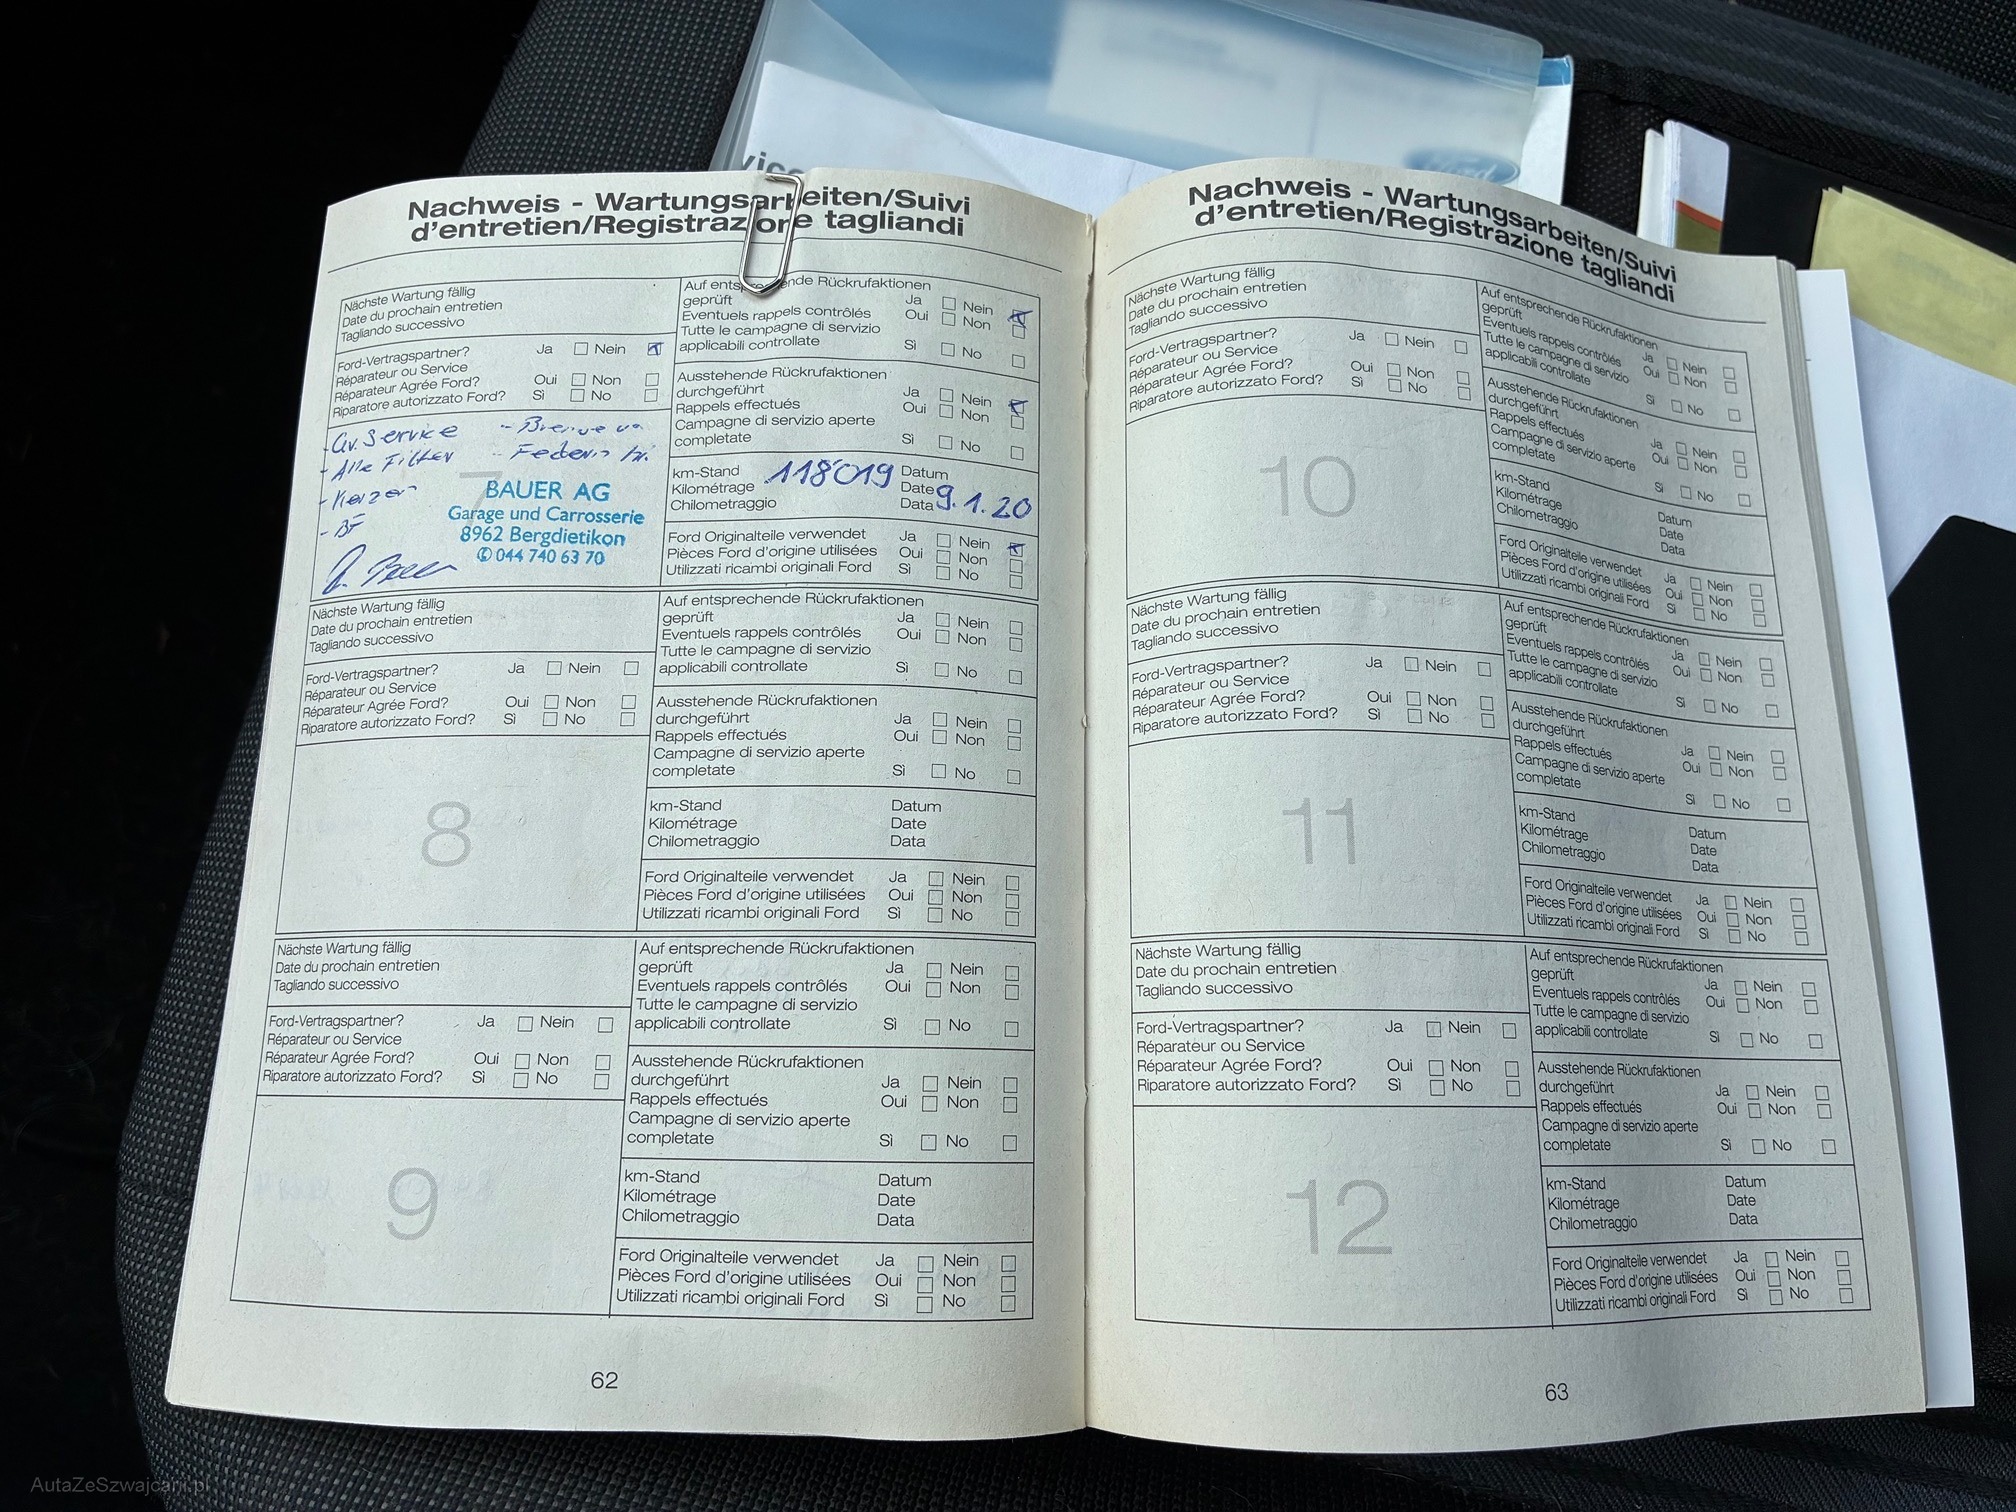 Nachweis - Wartungsarbeiten/Suivi
d'entretien/Registrazione tagliandi
Nächste Wartung fällig
Date du prochain entretien
Tagliando successivo
Ford-Vertragspartner? Ja Nein
Réparateur ou Service
Réparateur Agrée Ford? Oui Non
Riparatore autorizzato Ford? Sì No
- Gr. Service
- Alle Filter
- Kerzen
- BF
7
BAUER AG
Garage und Carrosserie
8962 Bergdietikon
✆ 044 740 63 70
Auf entsprechende Rückrufaktionen
geprüft Ja Nein
Eventuels rappels contrôlés Oui Non
Tutte le campagne di servizio
applicabili controllate Sì No
Ausstehende Rückrufaktionen
durchgeführt Ja Nein
Rappels effectués Oui Non
Campagne di servizio aperte
completate Sì No
km-Stand 118019 Datum
Kilométrage Date 9.1.20
Chilometraggio Data
Ford Originalteile verwendet Ja Nein
Pièces Ford d'origine utilisées Oui Non
Utilizzati ricambi originali Ford Sì No
Nächste Wartung fällig
Date du prochain entretien
Tagliando successivo
Ford-Vertragspartner? Ja Nein
Réparateur ou Service
Réparateur Agrée Ford? Oui Non
Riparatore autorizzato Ford? Sì No
8
Auf entsprechende Rückrufaktionen
geprüft Ja Nein
Eventuels rappels contrôlés Oui Non
Tutte le campagne di servizio
applicabili controllate Sì No
Ausstehende Rückrufaktionen
durchgeführt Ja Nein
Rappels effectués Oui Non
Campagne di servizio aperte
completate Sì No
km-Stand Datum
Kilométrage Date
Chilometraggio Data
Ford Originalteile verwendet Ja Nein
Pièces Ford d'origine utilisées Oui Non
Utilizzati ricambi originali Ford Sì No
Nächste Wartung fällig
Date du prochain entretien
Tagliando successivo
Ford-Vertragspartner? Ja Nein
Réparateur ou Service
Réparateur Agrée Ford? Oui Non
Riparatore autorizzato Ford? Sì No
9
Auf entsprechende Rückrufaktionen
geprüft Ja Nein
Eventuels rappels contrôlés Oui Non
Tutte le campagne di servizio
applicabili controllate Sì No
Ausstehende Rückrufaktionen
durchgeführt Ja Nein
Rappels effectués Oui Non
Campagne di servizio aperte
completate Sì No
km-Stand Datum
Kilométrage Date
Chilometraggio Data
Ford Originalteile verwendet Ja Nein
Pièces Ford d'origine utilisées Oui Non
Utilizzati ricambi originali Ford Sì No
62
Nachweis - Wartungsarbeiten/Suivi
d'entretien/Registrazione tagliandi
Nächste Wartung fällig
Date du prochain entretien
Tagliando successivo
Ford-Vertragspartner? Ja Nein
Réparateur ou Service
Réparateur Agrée Ford? Oui Non
Riparatore autorizzato Ford? Sì No
10
Auf entsprechende Rückrufaktionen
geprüft Ja Nein
Eventuels rappels contrôlés Oui Non
Tutte le campagne di servizio
applicabili controllate Sì No
Ausstehende Rückrufaktionen
durchgeführt Ja Nein
Rappels effectués Oui Non
Campagne di servizio aperte
completate Sì No
km-Stand Datum
Kilométrage Date
Chilometraggio Data
Ford Originalteile verwendet Ja Nein
Pièces Ford d'origine utilisées Oui Non
Utilizzati ricambi originali Ford Sì No
Nächste Wartung fällig
Date du prochain entretien
Tagliando successivo
Ford-Vertragspartner? Ja Nein
Réparateur ou Service
Réparateur Agrée Ford? Oui Non
Riparatore autorizzato Ford? Sì No
11
Auf entsprechende Rückrufaktionen
geprüft Ja Nein
Eventuels rappels contrôlés Oui Non
Tutte le campagne di servizio
applicabili controllate Sì No
Ausstehende Rückrufaktionen
durchgeführt Ja Nein
Rappels effectués Oui Non
Campagne di servizio aperte
completate Sì No
km-Stand Datum
Kilométrage Date
Chilometraggio Data
Ford Originalteile verwendet Ja Nein
Pièces Ford d'origine utilisées Oui Non
Utilizzati ricambi originali Ford Sì No
Nächste Wartung fällig
Date du prochain entretien
Tagliando successivo
Ford-Vertragspartner? Ja Nein
Réparateur ou Service
Réparateur Agrée Ford? Oui Non
Riparatore autorizzato Ford? Sì No
12
Auf entsprechende Rückrufaktionen
geprüft Ja Nein
Eventuels rappels contrôlés Oui Non
Tutte le campagne di servizio
applicabili controllate Sì No
Ausstehende Rückrufaktionen
durchgeführt Ja Nein
Rappels effectués Oui Non
Campagne di servizio aperte
completate Sì No
km-Stand Datum
Kilométrage Date
Chilometraggio Data
Ford Originalteile verwendet Ja Nein
Pièces Ford d'origine utilisées Oui Non
Utilizzati ricambi originali Ford Sì No
63
Ford
AutaZeSzwajcarii.pl